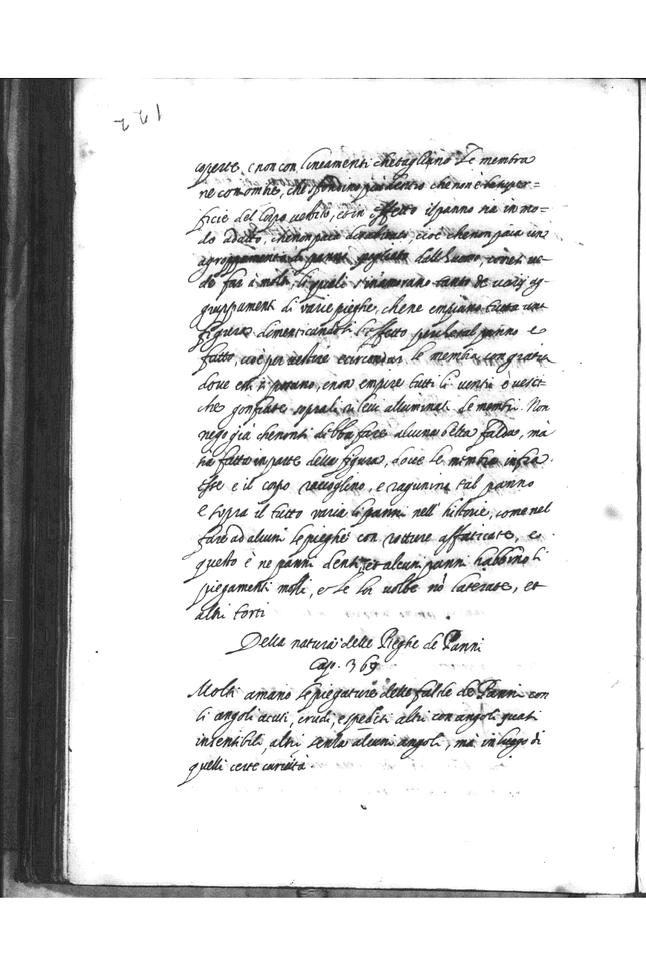 221
coperte, e non con lineamenti che tagliano le membra
ne con ombre, che sfondino piu dentro che non e la super=
ficie del corpo vestito, et in effetto il panno sia in mo=
do adatto, che non paia disabitato, cioè che non paia un
agroppamento di panni spogliato dall'huomo, come si ve=
de far à molti, li quali s'inamorano tanto de varij ag=
gruppamenti di varie pieghe, che ne empiano tutta una
figura dimenticandosi l'effetto perche tal panno e
fatto, cioè per vestire e circondar le membra con gratia
dove essi si posano, e non empire tutti li ventri è vesci=
che gonfiate sopra li rilevi alluminati de membri. Non
nego già che non si debba fare alcuna bella falda, mà
sia fatta in parte della figura, dove le membra infra
esse e il corpo raccoglino, e ragunina tal panno
e sopra il tutto varia li panni nell'historie, come nel
fare ad alcuni le pieghe con rotture affacciate, e
questo è ne panni densi, et alcuni panni habbino li
piegamenti molli, e le lor volte nò laterate, et
altri torti
Della natura delle Pieghe de Panni
Cap. 369
Molti amano le piegature delle falde de Panni con
li angoli acuti, crudi, e spediti altri con angoli quasi
insensibili altri senza alcuni angoli, mà in luogo di
quelli certe curvità.